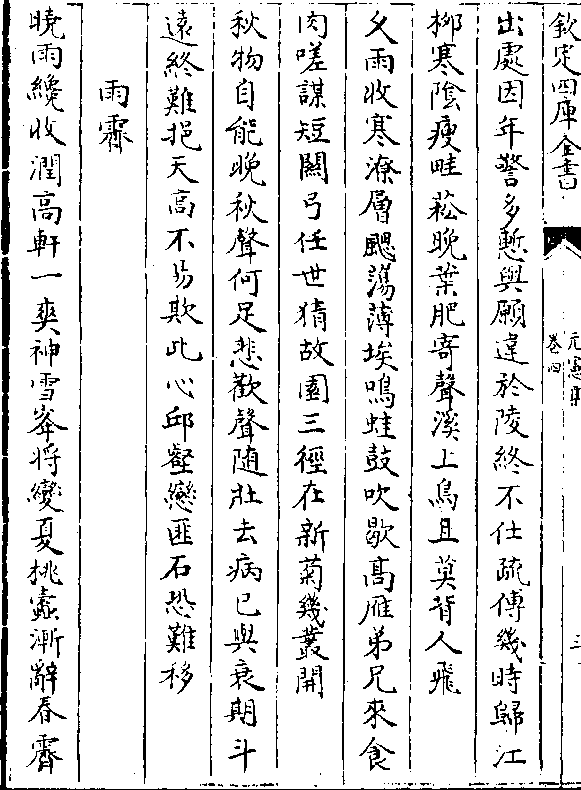 欽定四庫全書
元憲集
卷四
三
出處因年警多慙與願違於陵終不仕疏傅幾時歸江
栁寒陰瘦畦菘晚葉肥寄聲溪上鳥且莫背人飛
久雨收寒潦層颸蕩薄埃鳴蛙鼓吹歇髙雁弟兄來食
肉嗟謀短關弓任世猜故園三徑在新菊幾叢開
秋物自能晚秋聲何足悲歡聲隨壯去病已與衰期斗
遠終難挹天高不易欺此心邱壑戀匪石恐難移
雨霽
曉雨纔收潤高軒一爽神雪峯將變夏桃蠧漸辭春霽